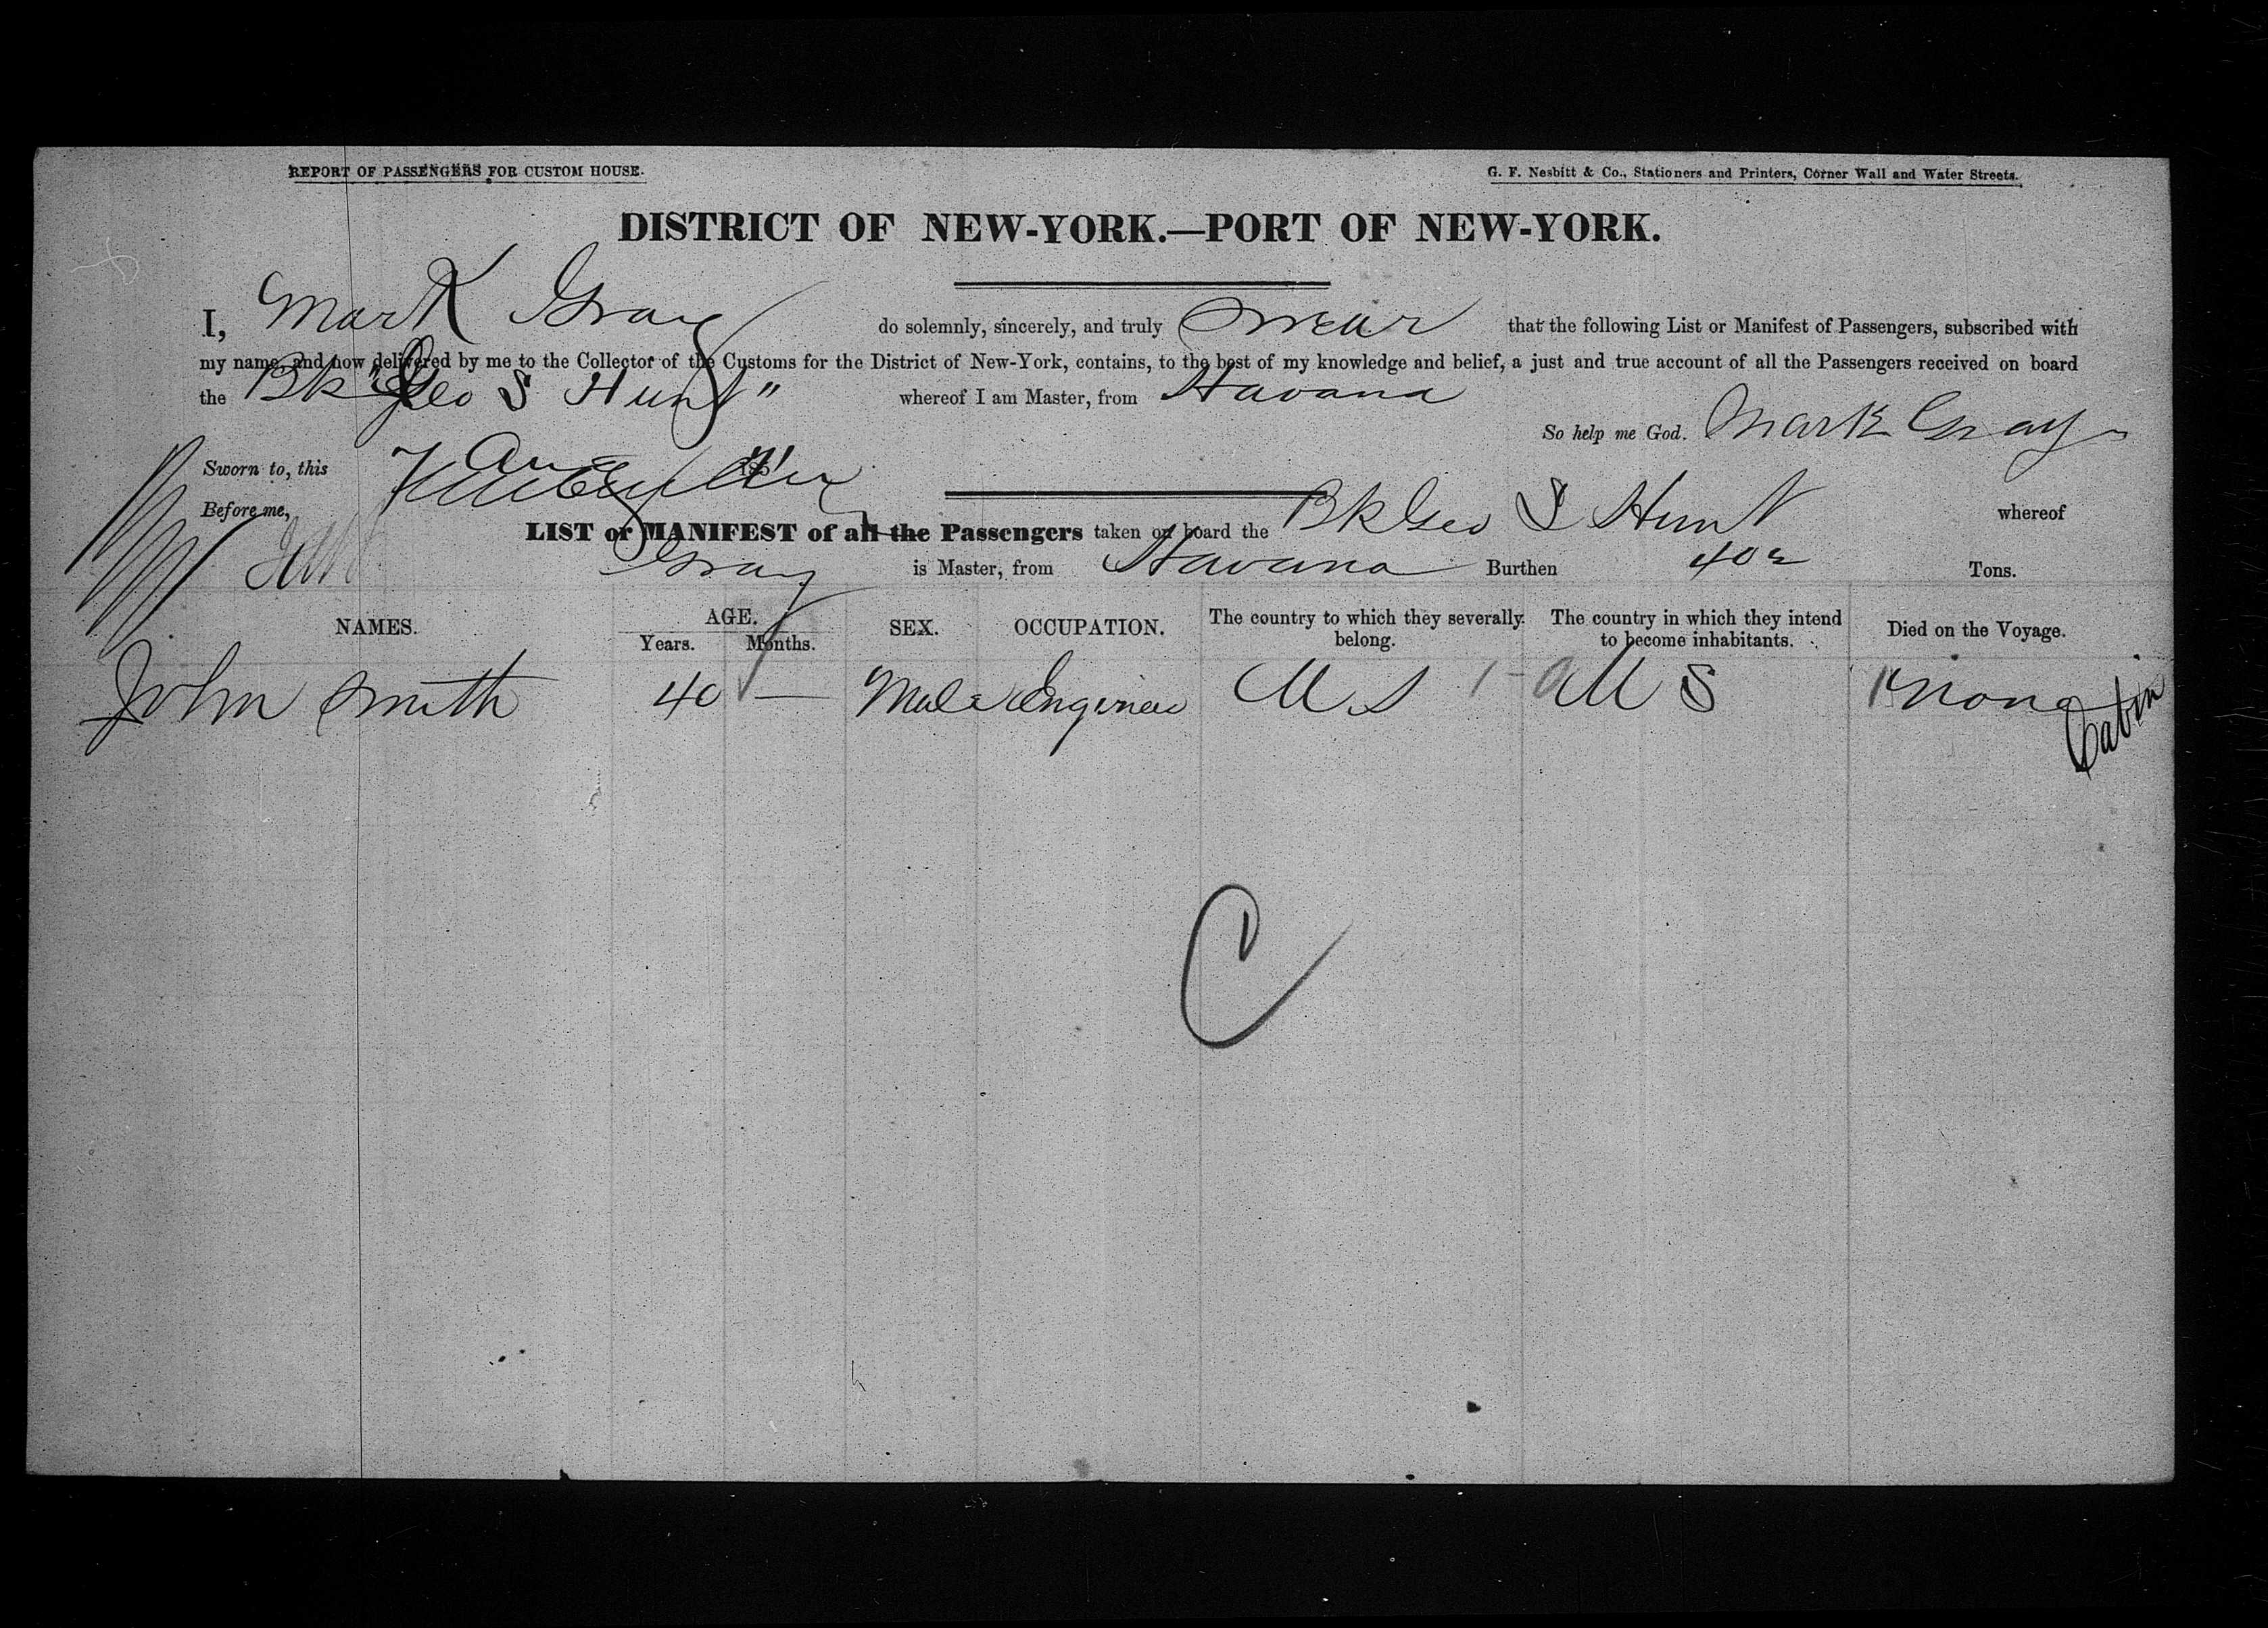 REPORT OF PASSENGERS FOR CUSTOM HOUSE.
G. F. Nesbitt & Co., Stationers and Printers, Corner Wall and Water Streets.
DISTRICT OF NEW-YORK.—PORT OF NEW-YORK.
I, Mark Gray do solemnly, sincerely, and truly Swear that the following List or Manifest of Passengers, subscribed with
my name, and now delivered by me to the Collector of the Customs for the District of New-York, contains, to the best of my knowledge and belief, a just and true account of all the Passengers received on board
the Bk "Geo S Hunt" whereof I am Master, from Havana
So help me God. Mark Gray
Sworn to, this
Before me,
LIST or MANIFEST of all the Passengers taken on board the Bk Geo S Hunt whereof
Gray is Master, from Havana Burthen 402 Tons.
NAMES. AGE. Years. Months. SEX. OCCUPATION. The country to which they severally belong. The country in which they intend to become inhabitants. Died on the Voyage.
John Smith 40 — Male Engineer U S U S None
Cabin
C